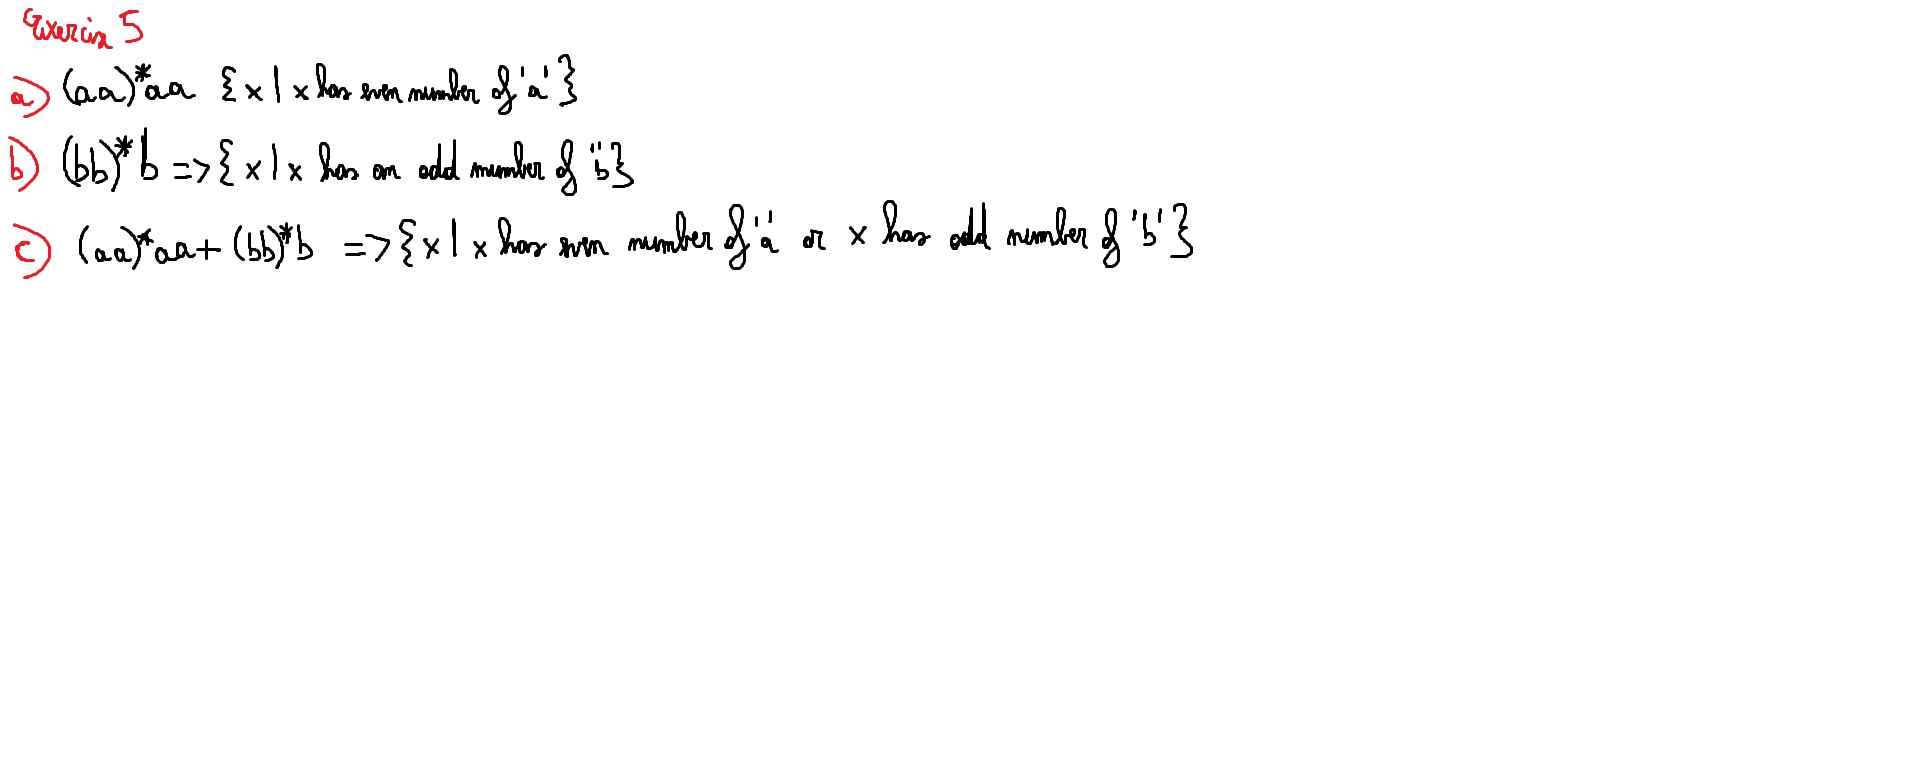 Exercise 5
a) (aa)*aa {x | x has even number of 'a'}
b) (bb)*b => {x | x has an odd number of "b}
c) (aa)*aa + (bb)*b => {x | x has even number of 'a' or x has odd number of 'b'}